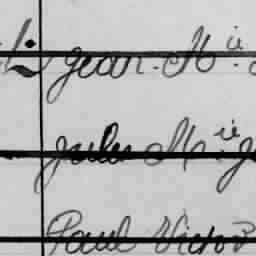 Jean-Mie
Jules Mie
Paul Victor